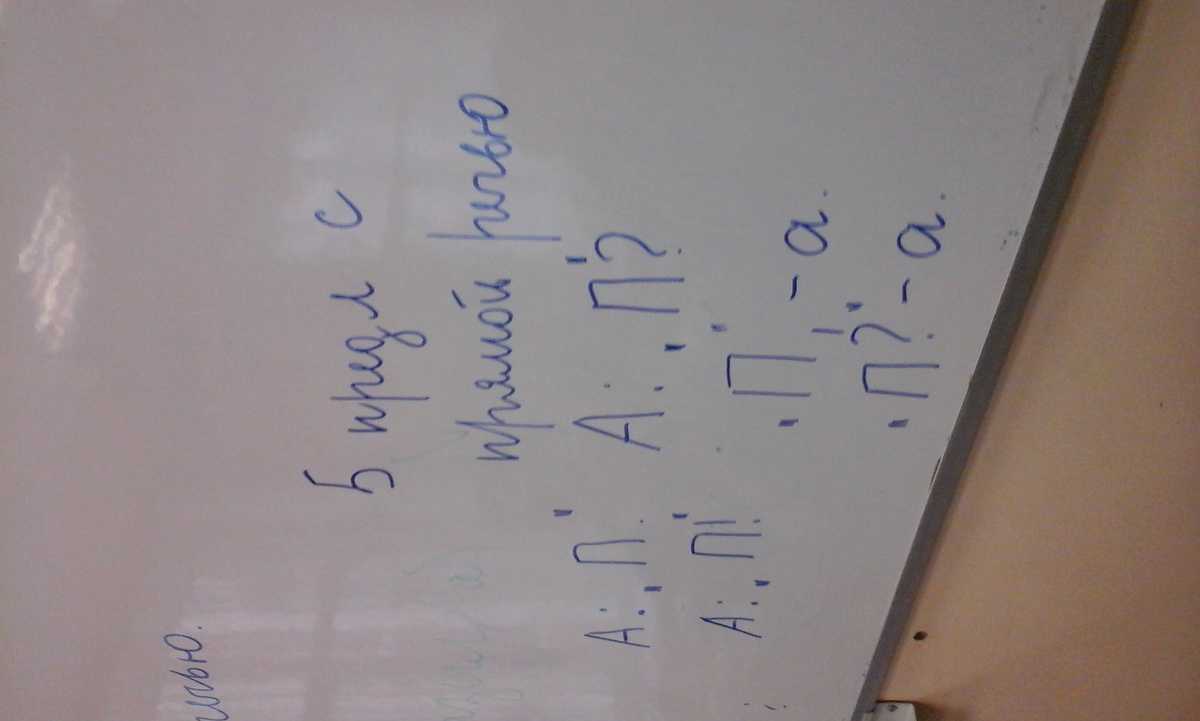 5 предл с
прямой речью
А: "П". А: "П?"
А: "П!"
"П", - а.
"П?" - а.